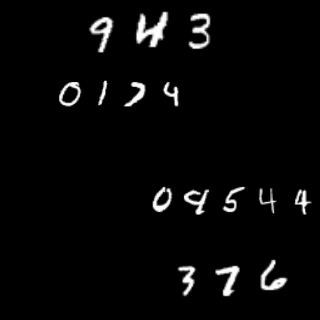 9 4 3
0 1 7 4
0 9 5 4 4
3 7 6